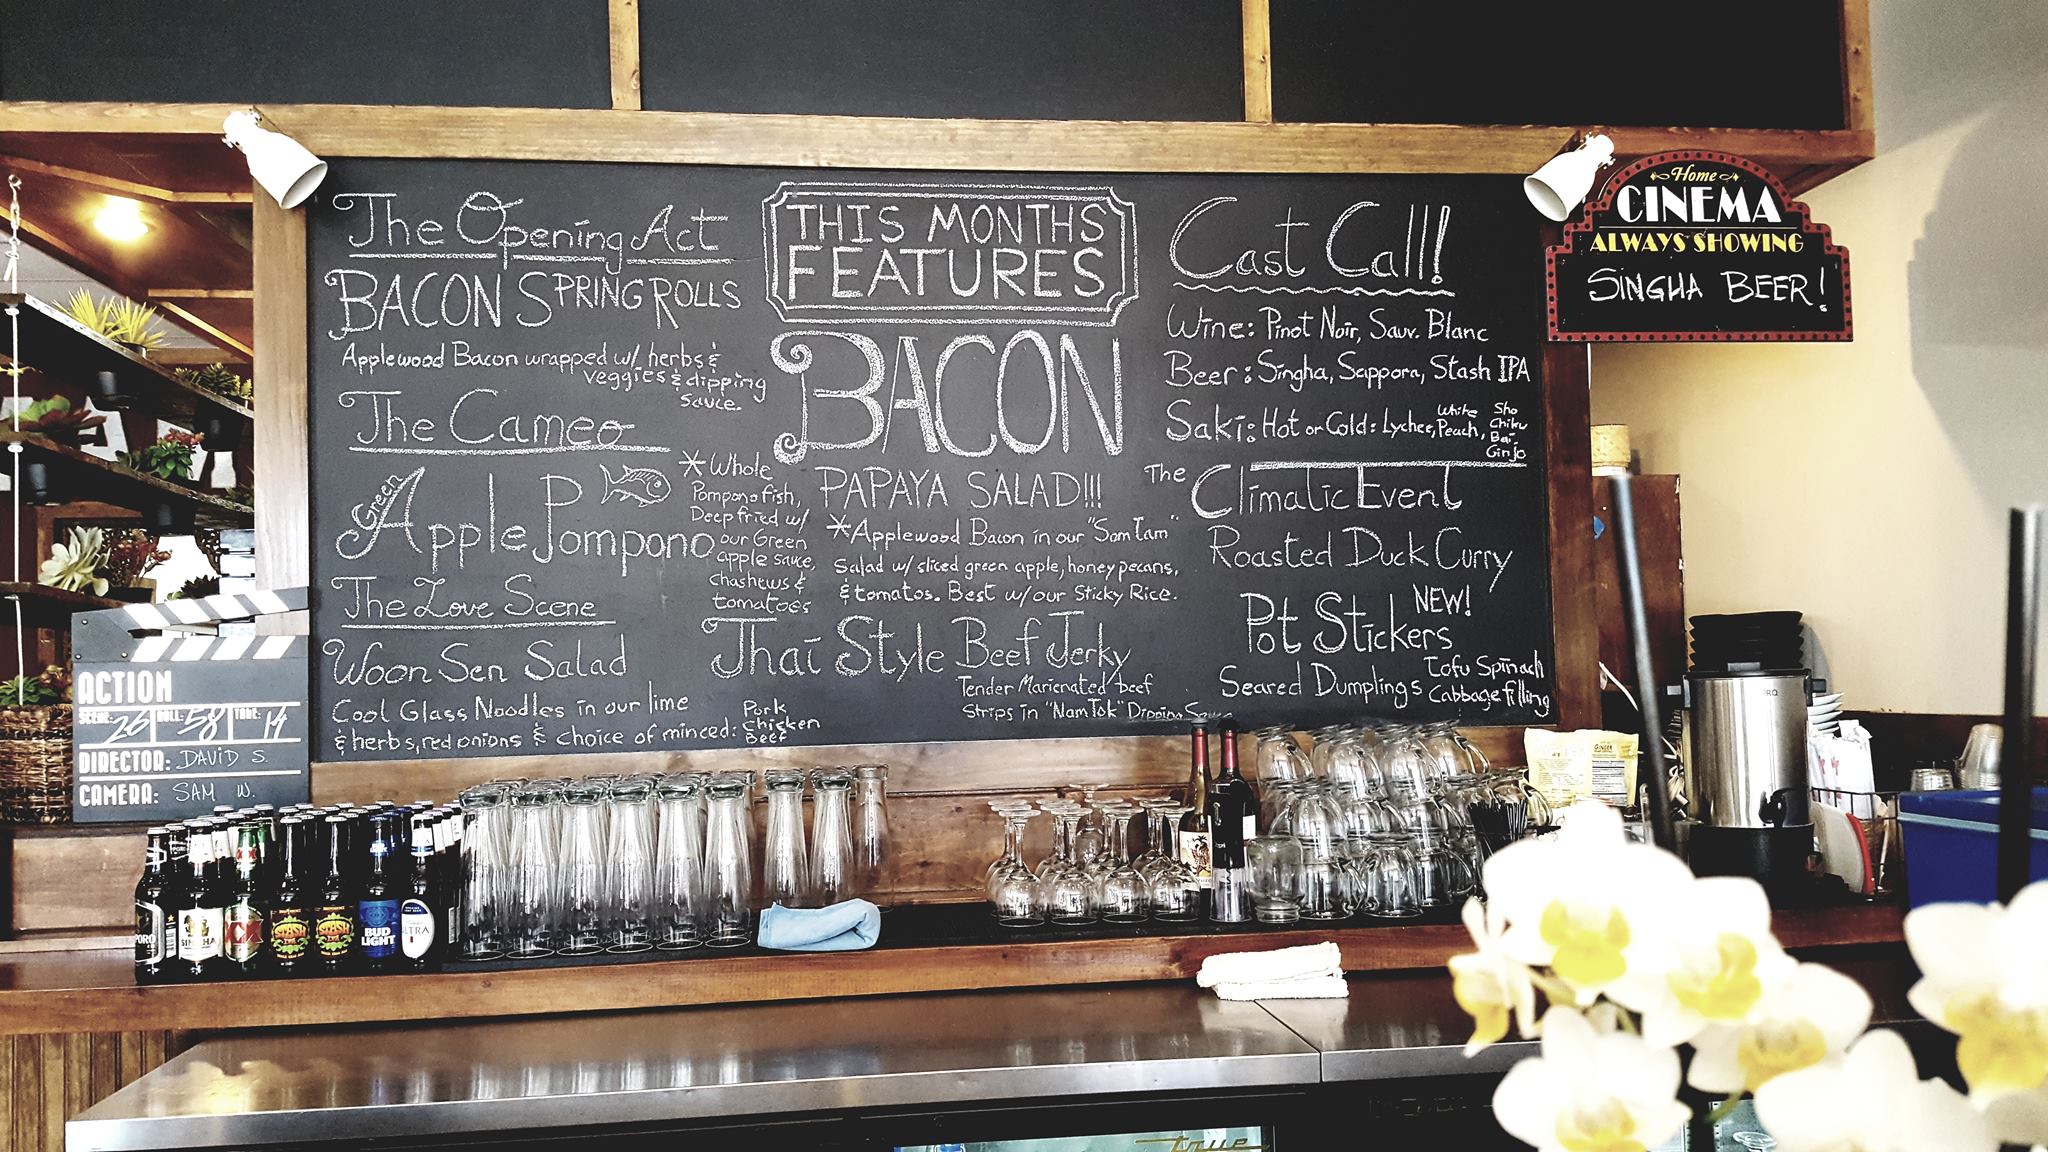 The Opening Act
BACON SPRING ROLLS
Applewood Bacon wrapped w/ herbs &
veggies & dipping
sauce.
The Cameo
Green
Apple Pompono
*Whole
Pompono fish,
Deep fried w/
our Green
apple sauce,
chashews &
tomatoes
The Love Scene
Woon Sen Salad
Cool Glass Noodles in our lime
& herbs, red onions & choice of minced:
Pork
Chicken
Beef
THIS MONTHS
FEATURES
BACON
PAPAYA SALAD!!!
*Applewood Bacon in our "Som Tam"
Salad w/ sliced green apple, honey pecans,
& tomatos. Best w/ our Sticky Rice.
Thai Style Beef Jerky
Tender Marienated beef
Strips in "Nam Tok" Dipping Sauce
Cast Call!
Wine: Pinot Noir, Sauv. Blanc
Beer: Singha, Sappora, Stash IPA
Saki: Hot or Cold: Lychee, White Peach,
Sho
Chiku
Bai
Ginjo
The Climatic Event
Roasted Duck Curry
NEW!
Pot Stickers
Seared Dumplings
Tofu Spinach
Cabbage filling
Home
CINEMA
ALWAYS SHOWING
SINGHA BEER!
ACTION
SCENE: 26 ROLL: 58 TAKE: 14
DIRECTOR: DAVID S.
CAMERA: SAM W.
PORO
SINGHA
XX
STASH
STASH
BUD
LIGHT
ULTRA
GINGER
true